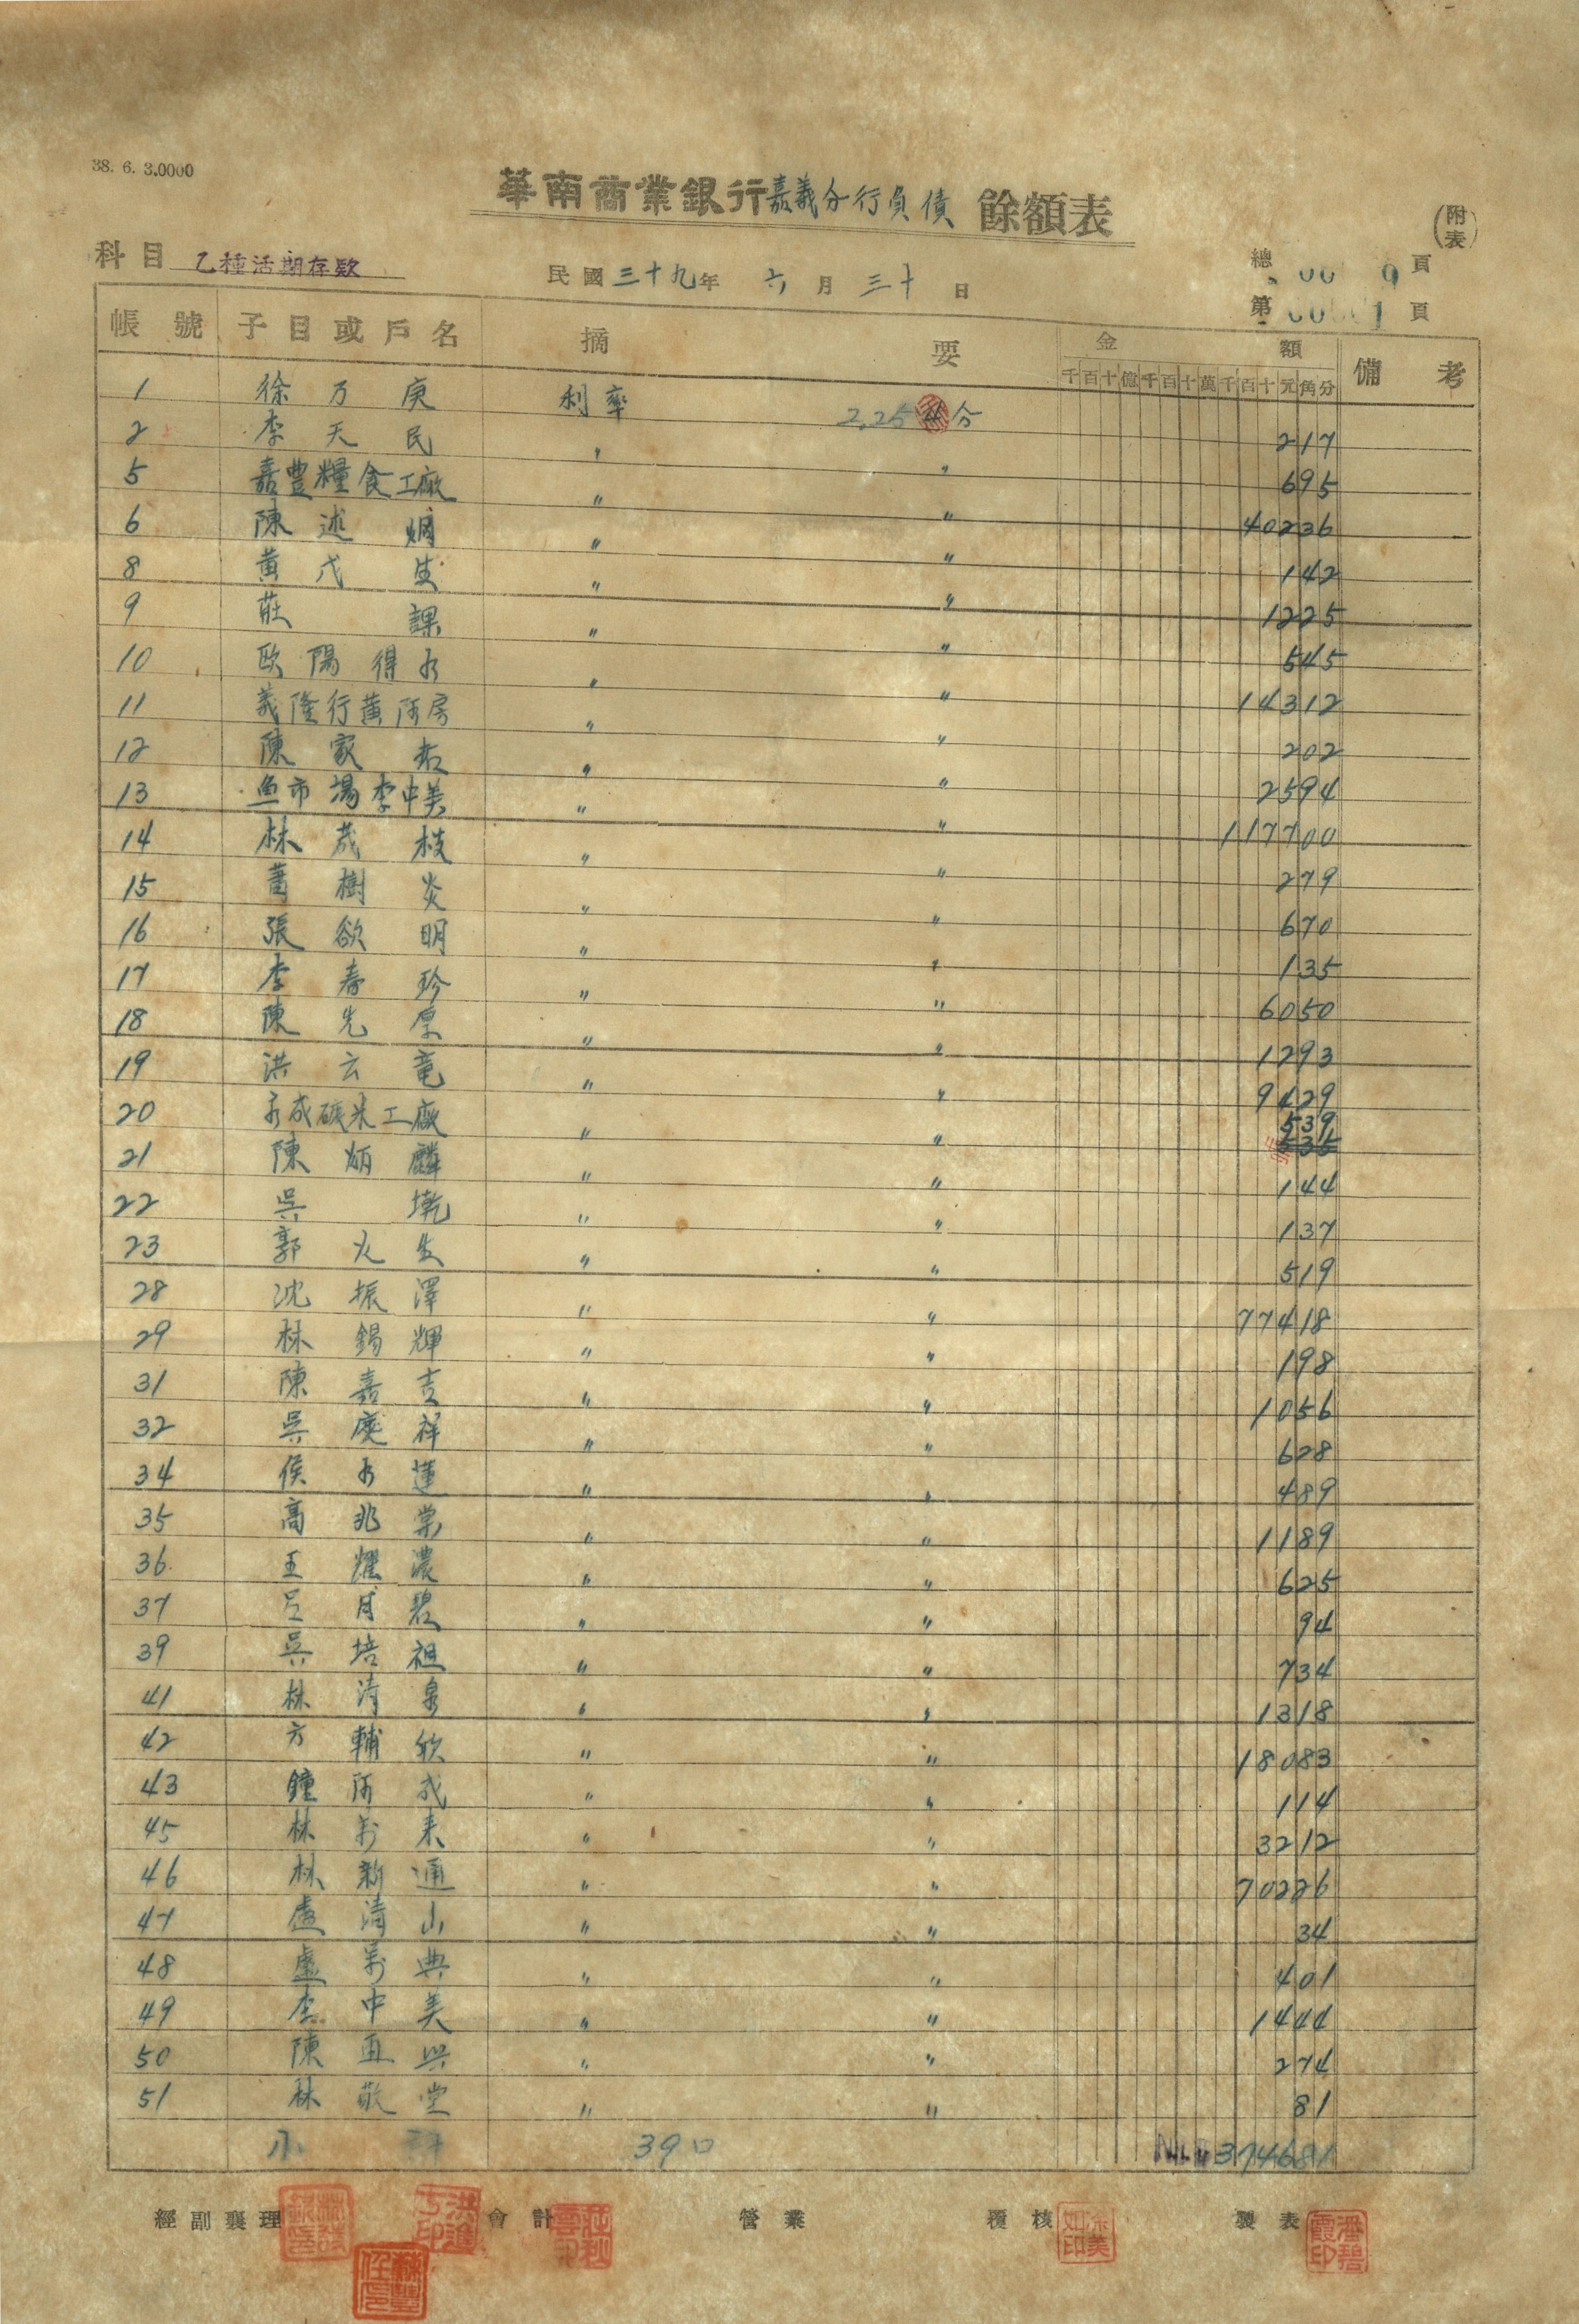 38. 6. 3.0000
華南商業銀行嘉義分行負債 餘額表
(附表)
科目 乙種活期存款
民國三十九年 六月 三十日
總 頁
第 頁
帳號 子目或戶名 摘要 金額 備考
千百十億千百十萬千百十元角分
1 徐万庚 利率 2.25 分 217
2 李天民 〃 〃 695
5 嘉豐糧食工廠 〃 〃 40236
6 陳述 〃 〃 142
8 黃戊生 〃 〃 1225
9 莊課 〃 〃 545
10 歐陽得水 〃 〃 14312
11 義隆行黃阿房 〃 〃 202
12 陳家 〃 〃 2594
13 魚市場李中美 〃 〃 117700
14 林茂枝 〃 〃 279
15 蕭樹炎 〃 〃 670
16 張欲明 〃 〃 135
17 李春珍 〃 〃 6050
18 陳先厚 〃 〃 1293
19 洪云竜 〃 〃 9429
20 永成碾米工廠 〃 〃 539
536
21 陳炳麟 〃 〃 144
22 吳乾 〃 〃 137
23 郭火生 〃 〃 519
28 沈振澤 〃 〃 77418
29 林錫輝 〃 〃 198
31 陳嘉吉 〃 〃 1056
32 吳慶祥 〃 〃 628
34 侯水蓮 〃 〃 489
35 高兆棠 〃 〃 1189
36 王耀濃 〃 〃 625
37 呂碧 〃 〃 94
39 吳培祖 〃 〃 734
41 林清泉 〃 〃 1318
42 方輔欽 〃 〃 18083
43 鐘阿成 〃 〃 114
45 林萬来 〃 〃 3212
46 林新通 〃 〃 70226
47 盧清山 〃 〃 34
48 盧萬典 〃 〃 401
49 李中美 〃 〃 1444
50 陳再興 〃 〃 274
51 林敬堂 〃 〃 81
小計 39口 374681
經副襄理 會計 營業 覆核 製表
潘碧霞印